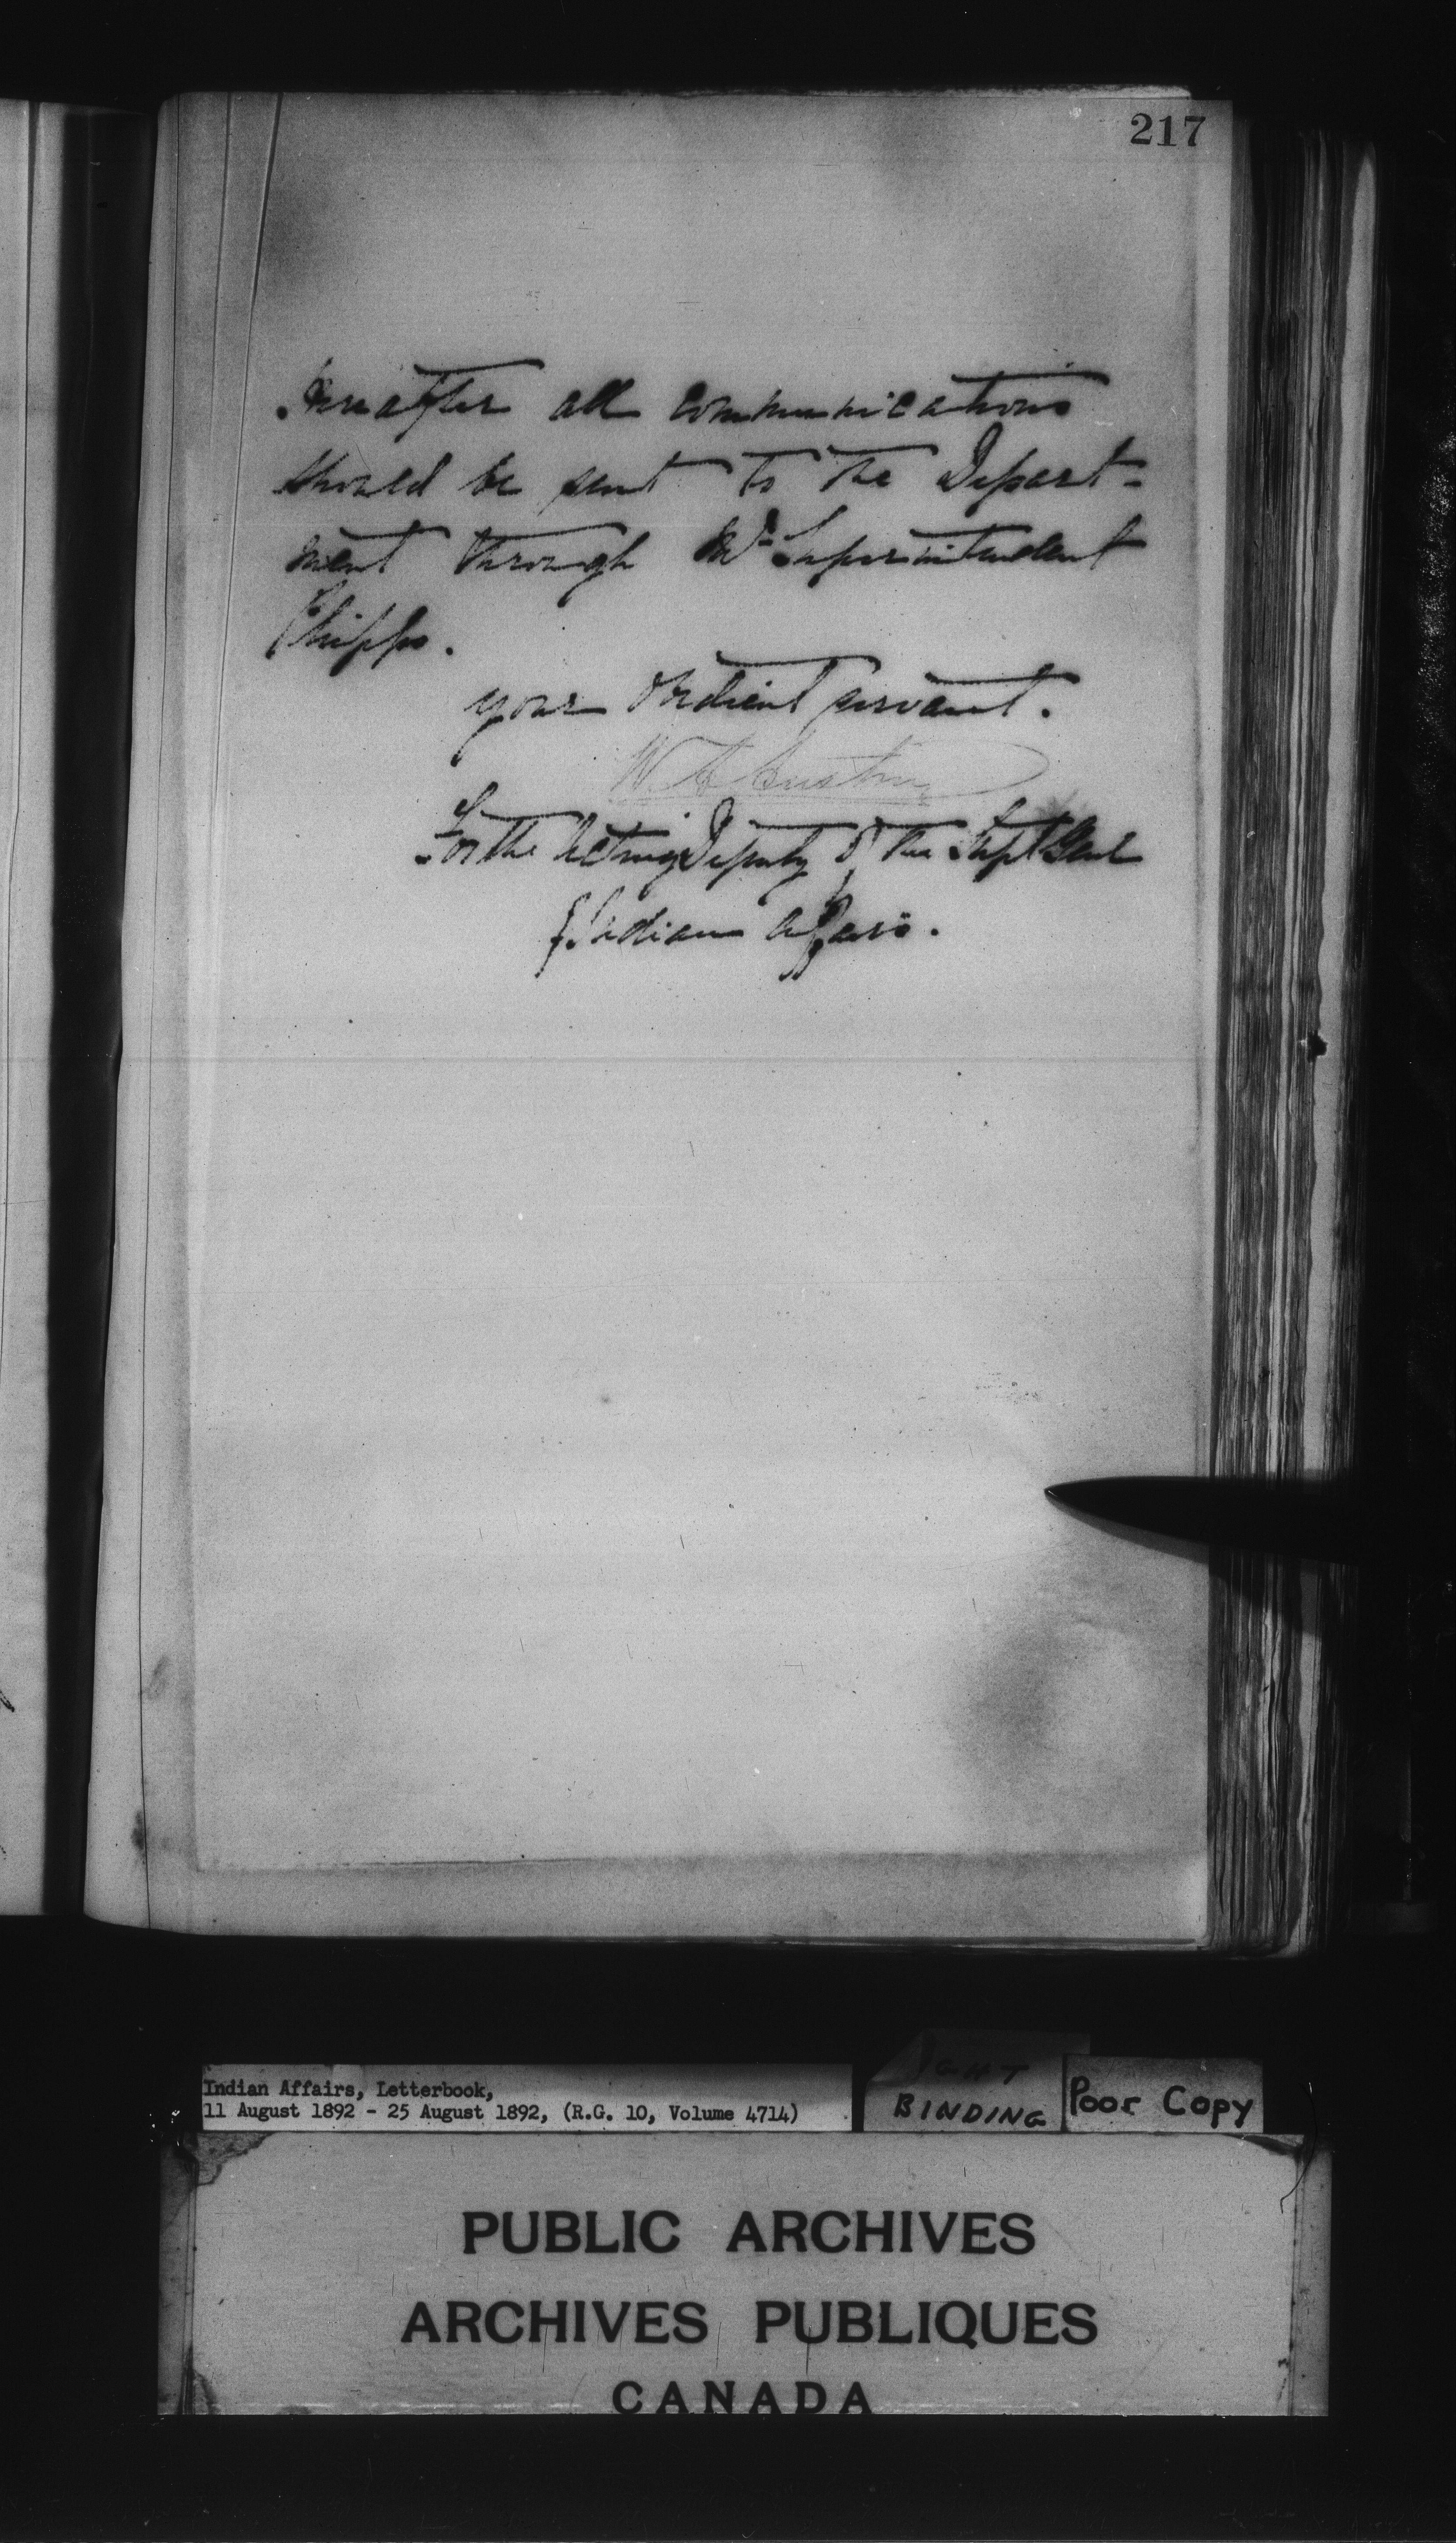 217
Hereafter all communications
should be sent to the Depart-
ment through Mr Superintendent
Phipps.
your obedient servant.
W A Austin
For the Acting Deputy of the Supt Genl
of Indian Affairs.
Indian Affairs, Letterbook,
11 August 1892 - 25 August 1892, (R.G. 10, Volume 4714)
BINDING
Poor Copy
PUBLIC ARCHIVES
ARCHIVES PUBLIQUES
CANADA